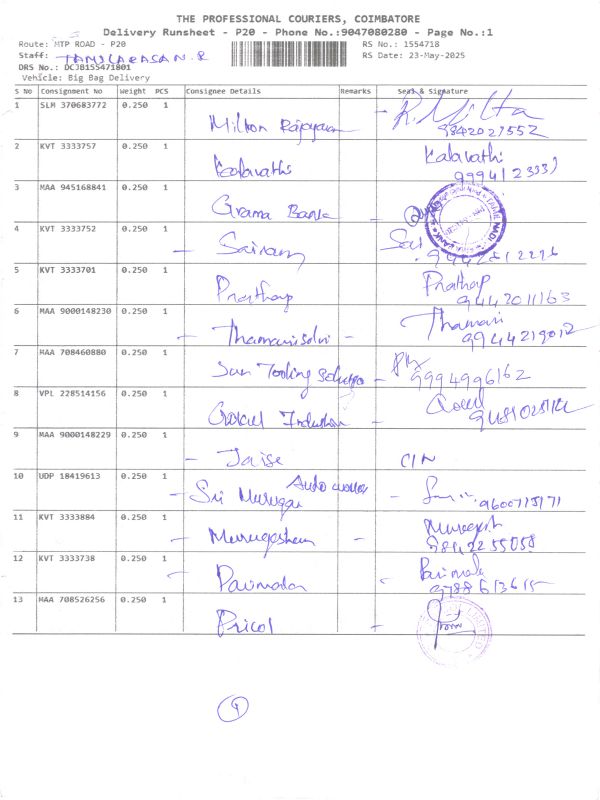 THE PROFESSIONAL COURIERS, COIMBATORE
Delivery Runsheet - P20 - Phone No.:9047080280 - Page No.:1
Route: MTP ROAD - P20 RS No.: 1554718
Staff: TAMILARASAN.R RS Date: 23-May-2025
DRS No.: DCJB155471801
Vehicle: Big Bag Delivery
S No Consignment No Weight PCS Consignee Details Remarks Seal & Signature
1 SLM 370683772 0.250 1 R. Milta
Milton Rajayaram 9842027552
2 KVT 3333757 0.250 1 Kalavathi
Kalavathi
3 MAA 945168841 0.250 1
Grama Bank -
4 KVT 3333752 0.250 1 Sai
- Sairam
5 KVT 3333701 0.250 1 Prathap
Prathap 9442011163
6 MAA 9000148230 0.250 1 Thamari
- Thamariselvi - 9944219012
7 MAA 708460880 0.250 1
Sun Tooling - 9994996162
8 VPL 228514156 0.250 1
Gokul Industries -
9 MAA 9000148229 0.250 1
- Jaise CIN
10 UDP 18419613 0.250 1 Auto
- Sri Murugan - 9600715171
11 KVT 3333884 0.250 1 Murugesh
- Murugesham - 9842255058
12 KVT 3333738 0.250 1 Parimala
Parimala 9788613615
13 MAA 708526256 0.250 1
Pricol -
9